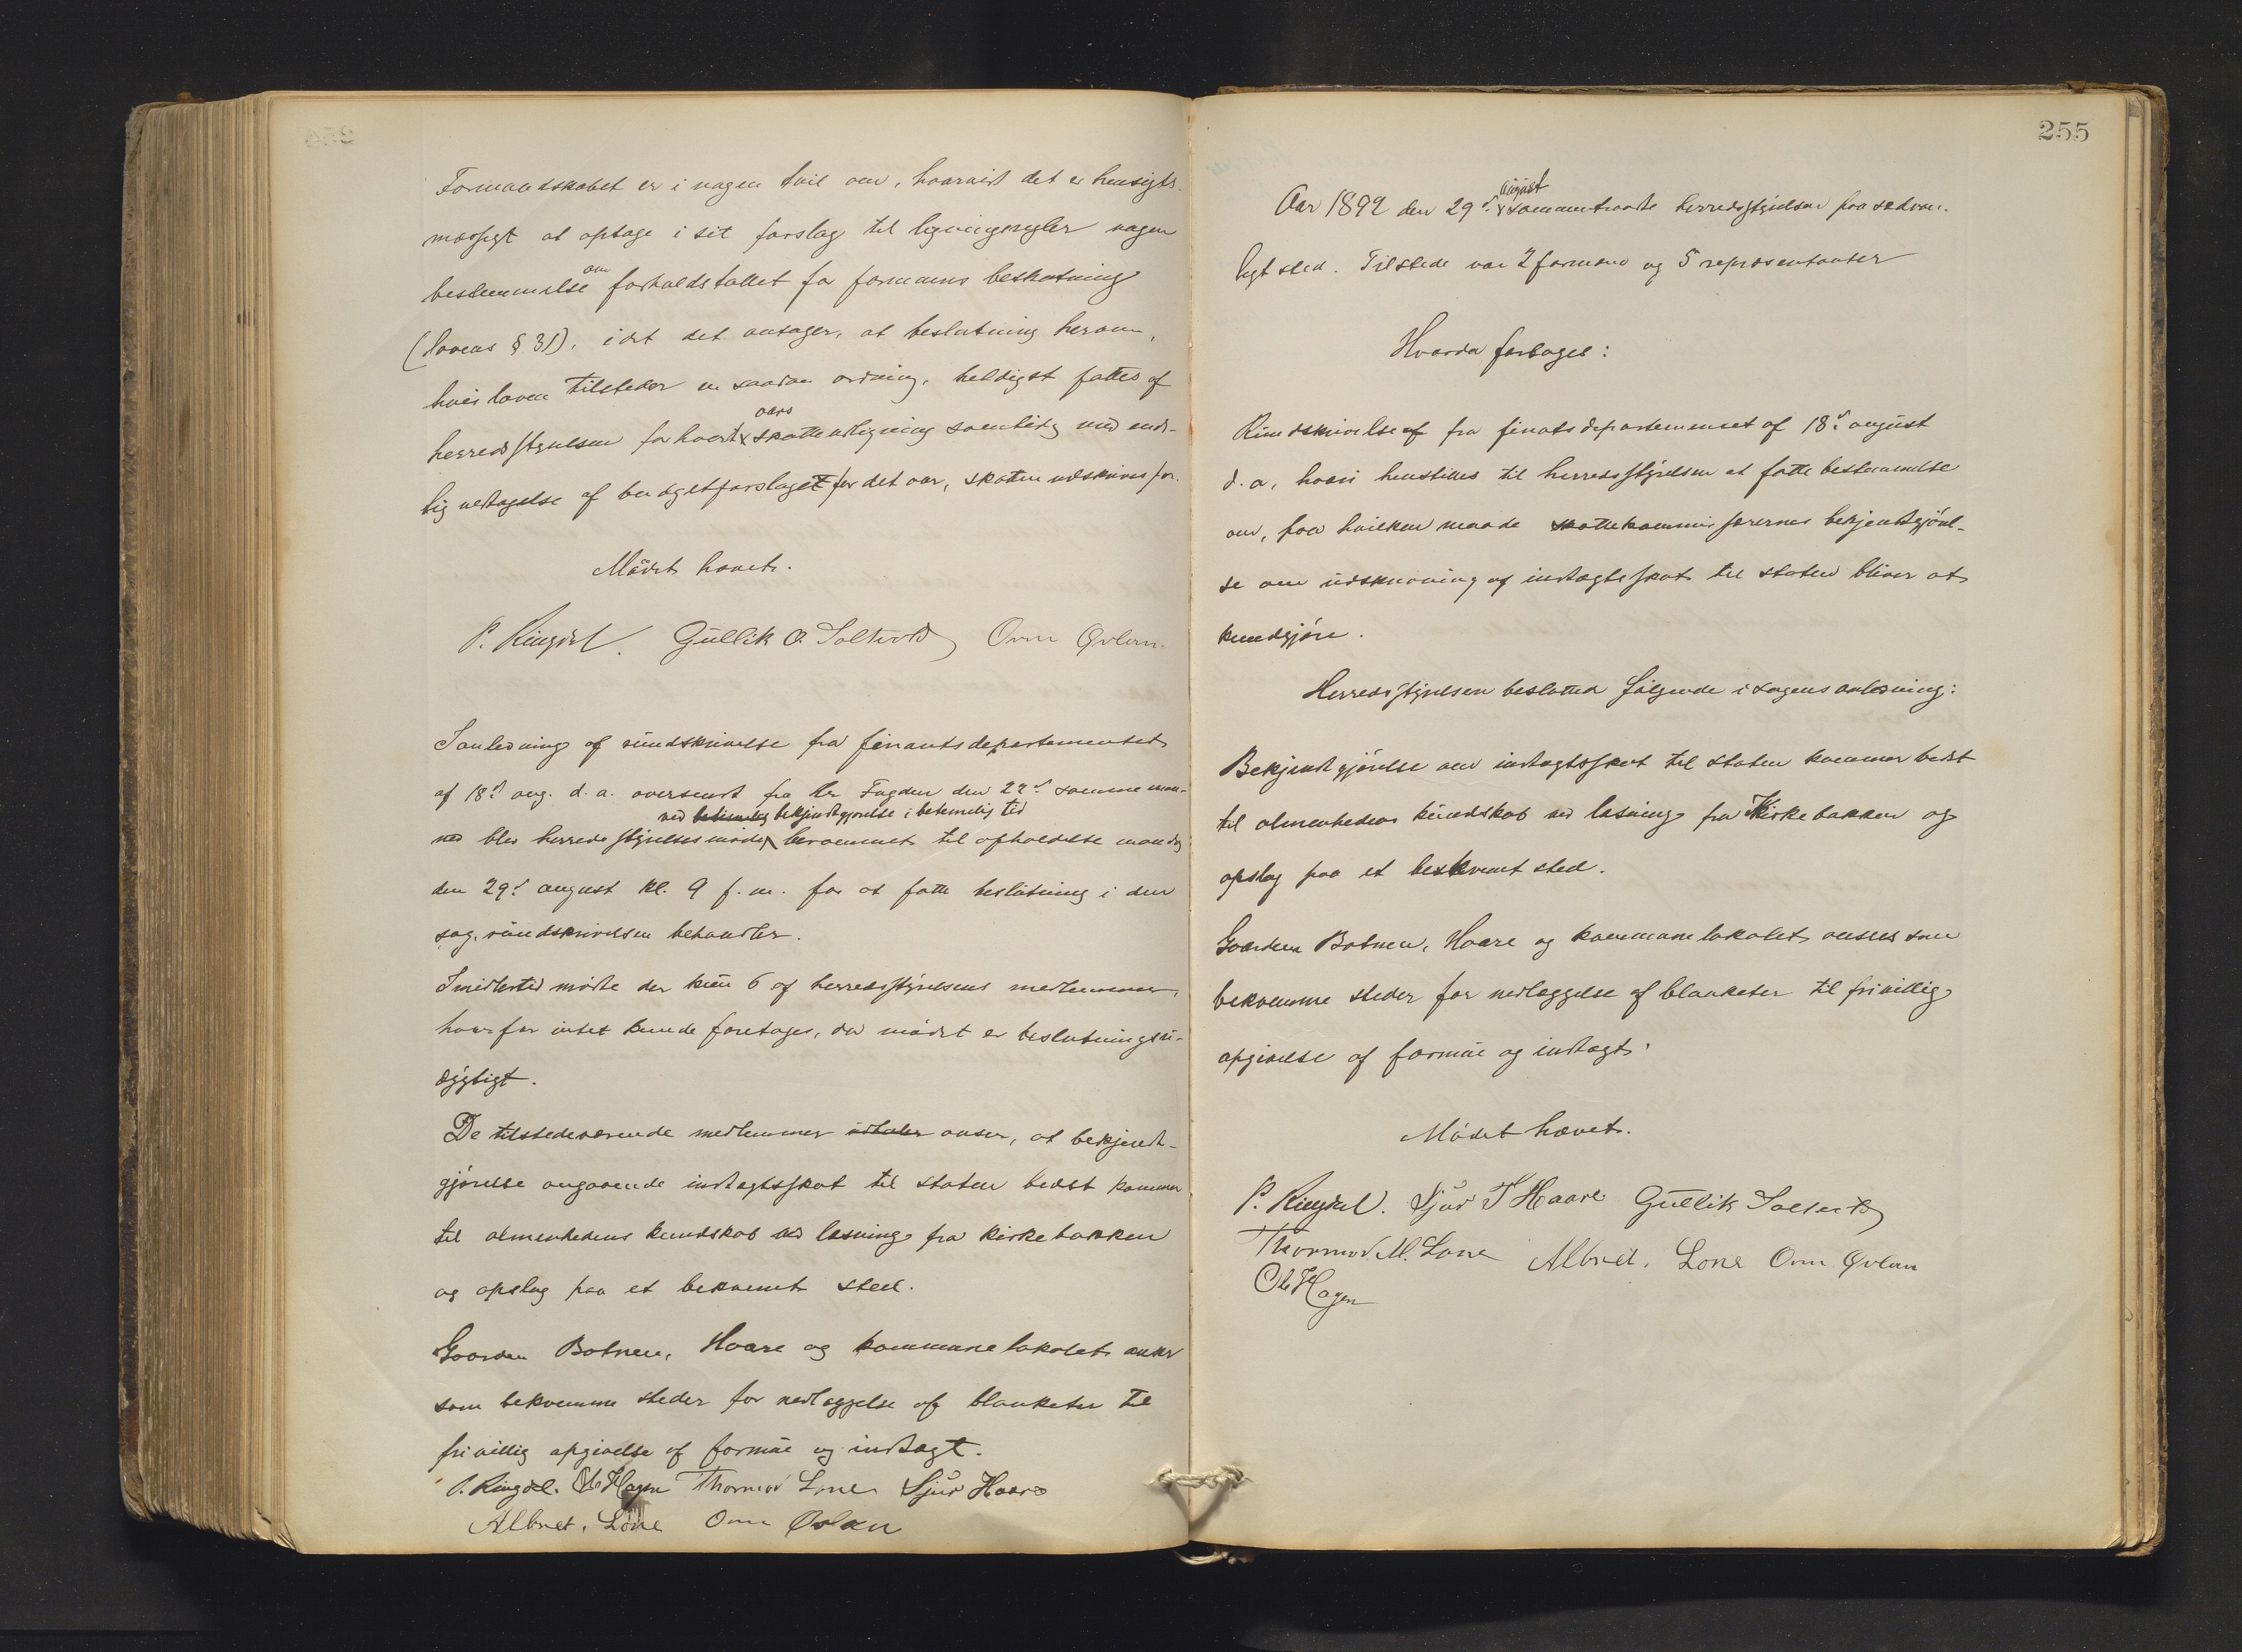 Formandskabet er i nogen tvil om, hvorvidt det er hensigts-
mæssigt at optage i sit forslag til ligningsregler nogen
bestemmelse om forholdstallet for formuens beskatning
(lovens § 31), idet det antager, at beslutning herom,
hvis loven tilsteder en saadan ordning, heldigst fattes af
herredsstyrelsen for hvert aars skatteudligning samtidig med ende-
lig vedtagelse af budgetforslaget for det aar, skatten udskrives for.
Mødet hævet.
P. Ringdal. Gullik O. Soltvedt Orm Øvlan.
I anledning af rundskrivelse fra finantsdepartementet
af 18d aug. d. a. oversendt fra hr Fogden den 22d samme maa-
ned bekjendtgjørelse i betimelig tid
ned blev herredsstyrelsesmøde berammet til afholdelse mandag
den 29d august kl. 9 f. m. for at fatte beslutning i den
sag, rundskrivelsen behandler.
Imidlertid mødte der kun 6 af herredsstyrelsens medlemmer,
hvorfor intet kunde foretages, da mødet er beslutningsu-
dygtigt.
De tilstedeværende medlemmer udtaler anser, at bekjendt-
gjørelse angaaende indtægtsskat til staten bedst kommer
til almenhedens kundskab ved læsning fra kirkebakken
og opslag paa et bekvemt sted.
Gaarden Botnen, Haare og kommunelokalet anser
som bekvemme steder for nedlæggelse af blanketer til
frivillig opgivelse af formue og indtægt.
P. Ringdal. Ole Hagen Thormod Lone Sjur Haare
Albret. Lone Orm Øvlan
255
Aar 1892 den 29d august sammentraadte herredsstyrelsen paa sedvan-
ligt sted. Tilstede var 2 formænd og 5 repræsentanter
Hvorda foretoges:
Rundskrivelse af fra finatsdepartemenset af 18d august
d. a, hvori henstilles til herredsstyrelsen at fatte bestemmelse
om, paa hvilken maade skattekommissærernes bekjendtgjørel-
se om udskrivning af indtægtsskat til staten bliver at
kundgjøre.
Herredsstyrelsen besluttet følgende i sagens anledning:
Bekjendtgjørelse om indtægtsskat til staten kommer bedst
til almenhedens kundskab ved læsning fra Kirkebakken og
opslag paa et beskvemt sted.
Gaarden Botnen, Haare og kommunelokalet ansees som
bekvemme steder for nedlæggelse af blanketer til frivillig
opgivelse af formue og indtægt.
Mødet hævet.
P. Ringdal. Sjur T Haare Gullik Soltvedt
Thormod M. Lone Albret. Lone Orm Øvlan
Ole Hagen